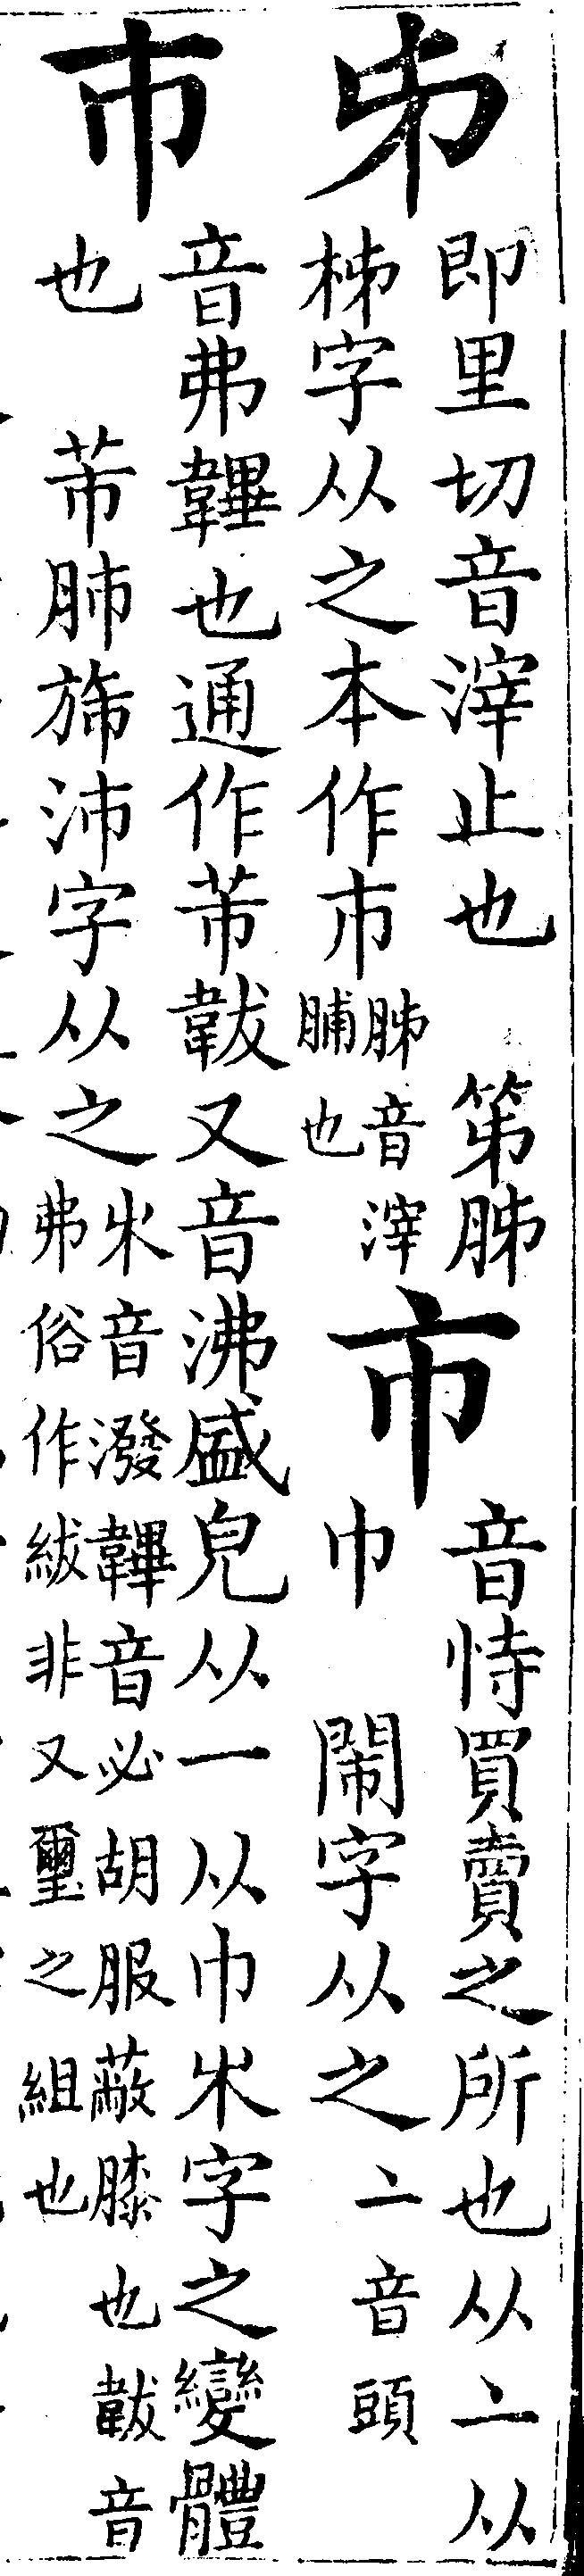 𠂔
即里切音滓止也　笫胏
柹字从之本作巿
胏音滓
脯也
市
音恃買賣之所也从亠从
巾　閙字从之
亠音頭
巿
音弗韠也通作芾韍又音沸盛皃从一从巾𣎵字之變體
也　芾肺旆沛字从之
𣎵音潑韠音必胡服蔽膝也韍音
弗俗作紱非又璽之組也